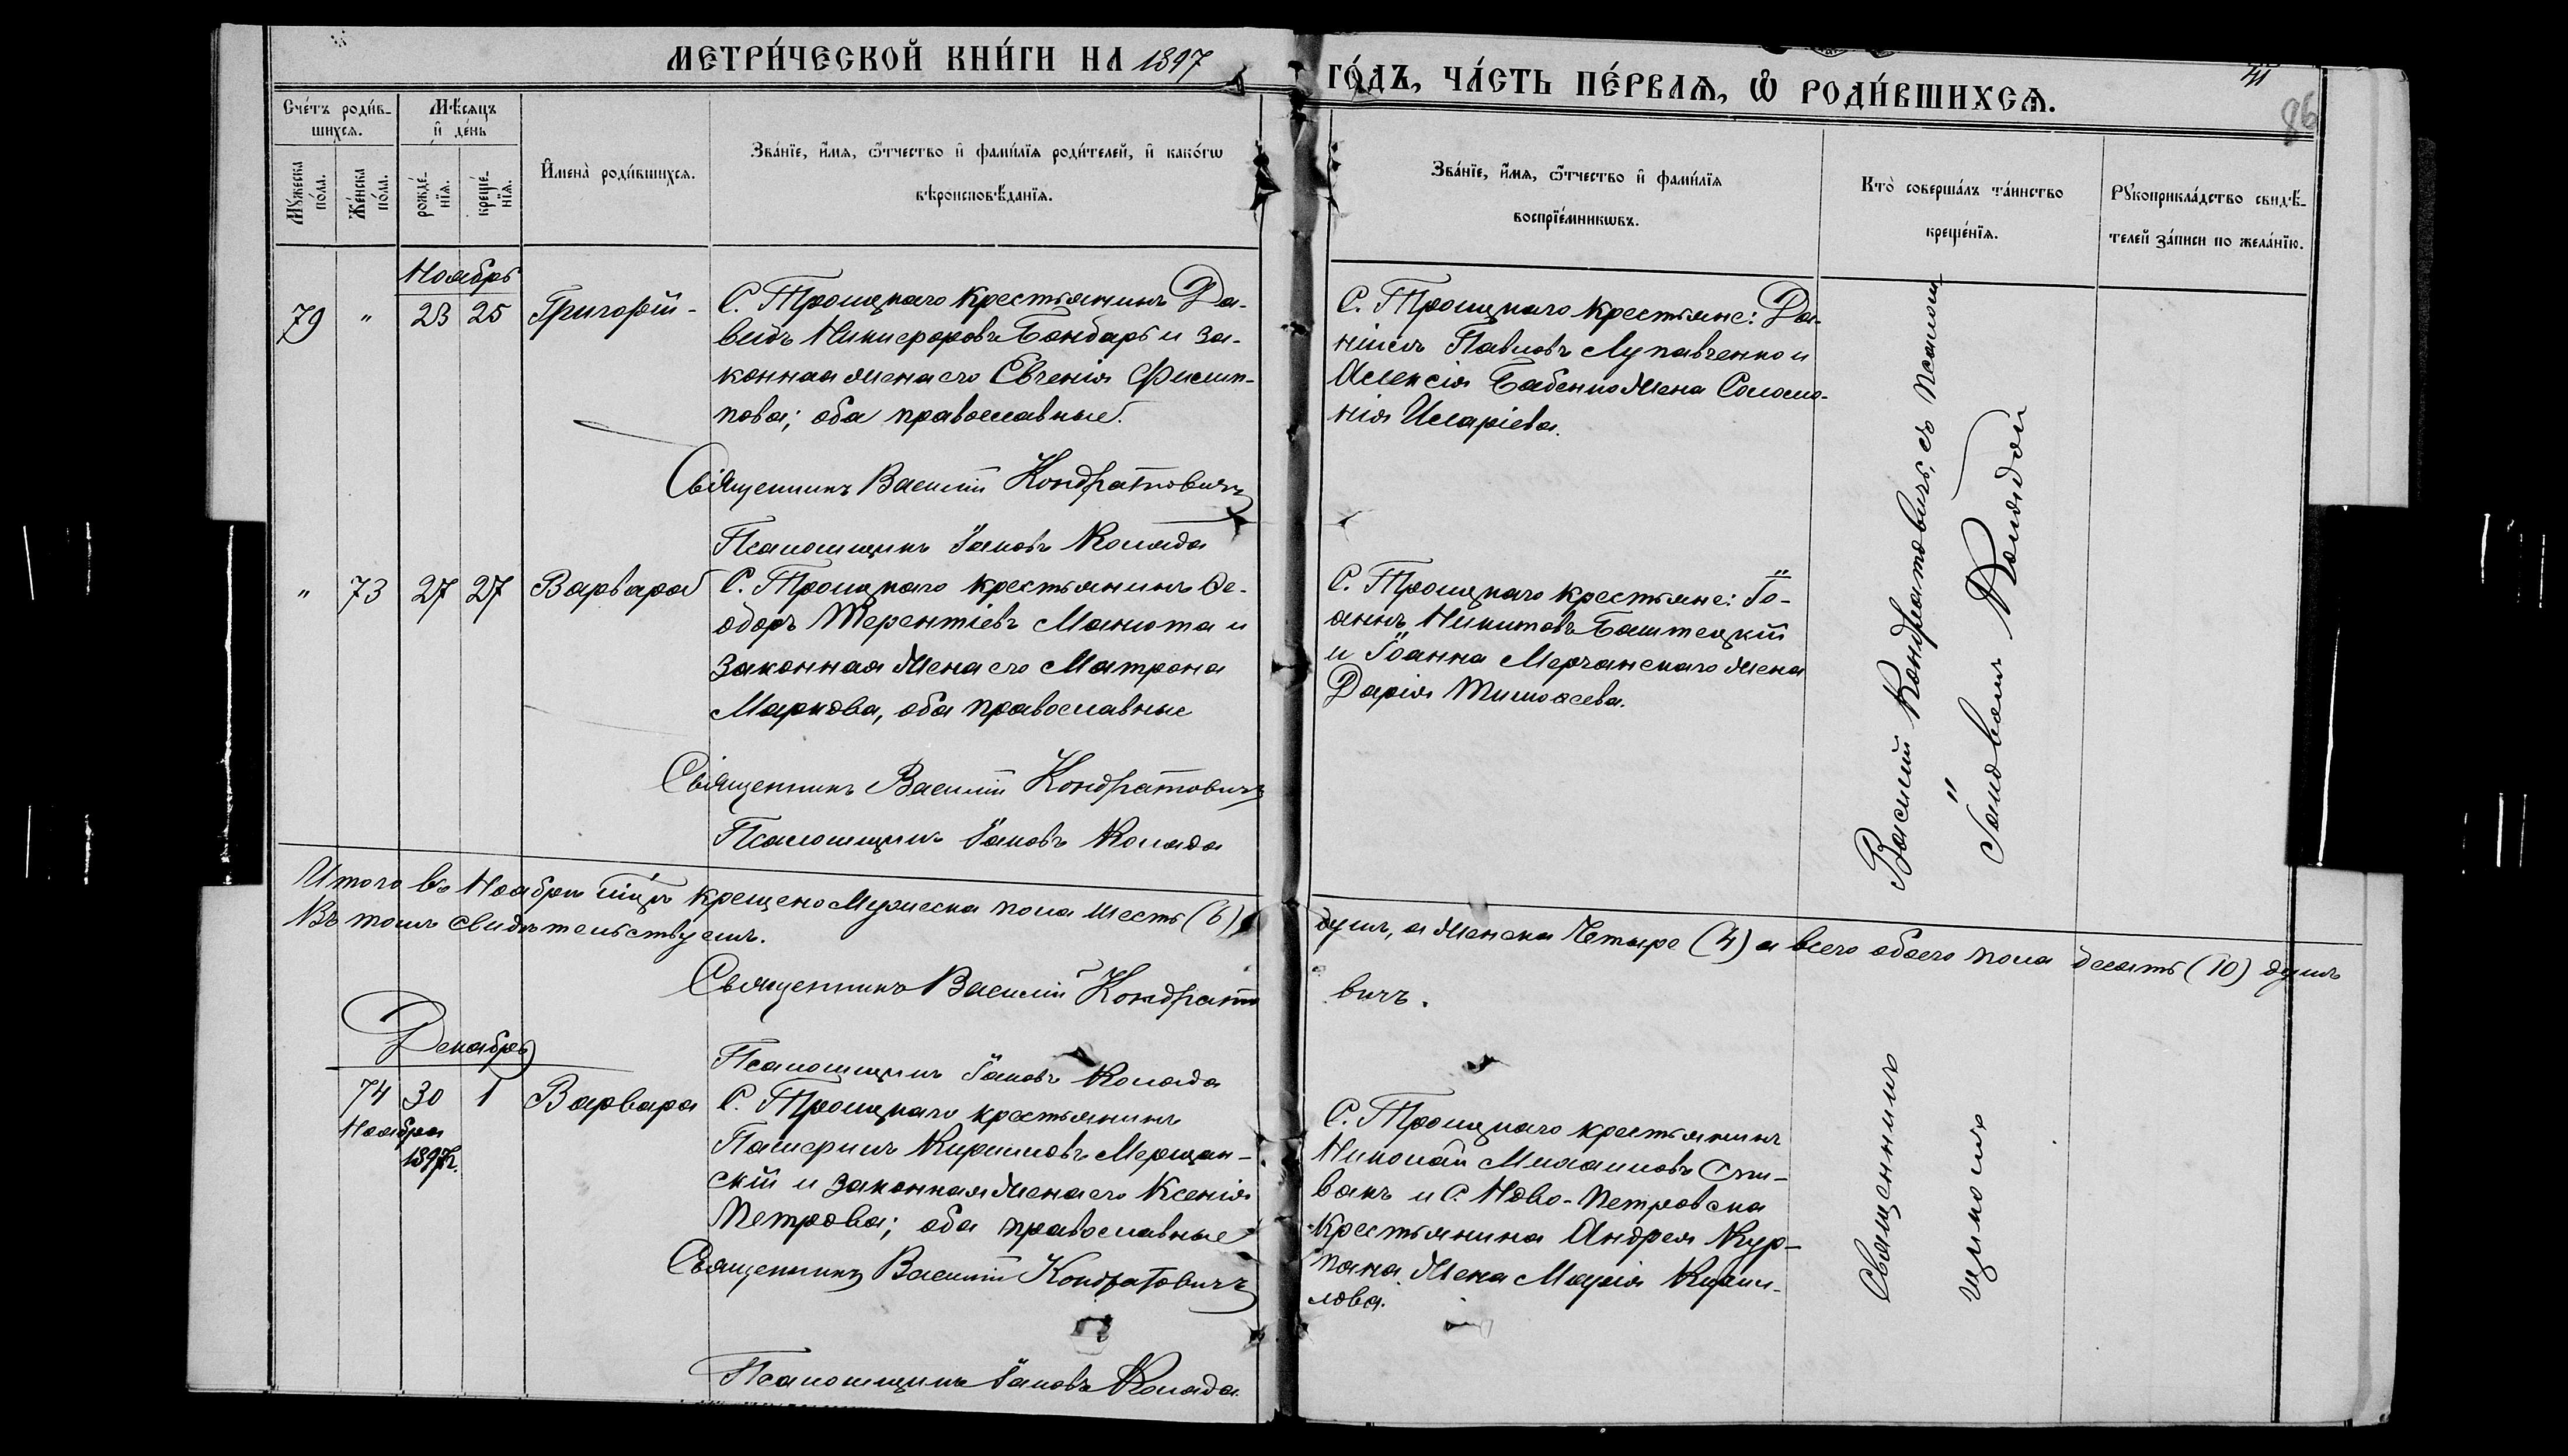 МЕТРИ́ЧЕСКОЙ КНИ́ГИ НА 1897
ГО́ДЪ, ЧА́СТЬ ПЕ́РВАѦ, Ѽ РОДИ́ВШИХСѦ.
41
86
Сче́тъ роди́в-
шихсѧ.
Мѣ́сѧцъ
и҆ де́нь
Мꙋжеска
по́ла.
Же́нска
по́ла.
рожде́-
нїѧ.
креще́-
нїѧ.
И҆мена̀ роди́вшихсѧ.
Зва́нїе, и҆́мѧ, ѻ҆́тчество и҆ фами́лїѧ роди́телей, и҆ како́гѡ
вѣроисповѣ́данїѧ.
Зва́нїе, и҆́мѧ, ѻ҆́тчество и҆ фами́лїѧ
воспрїе́мникѡвъ.
Кто̀ соверша́лъ та́инство
креще́нїѧ.
Рꙋкоприкла́дство свидѣ́-
телей за́писи по жела́нїю.
Ноябрь
79 " 23 25 Григорій
С. Троицкаго крестьянинъ Да-
видъ Никифоровъ Бондарь и за-
конная жена его Евгенія Филип-
пова; оба православные.
Священникъ Василій Кондратовичъ
Псаломщикъ Іаковъ Коляда
С. Троицкаго крестьяне: Да-
ніилъ Павловъ Лупавченко и
Алексія Бабенко жена Соломо-
нія Иларіева.
" 73 27 27 Варвара
С. Троицкаго крестьянинъ Ѳе-
одоръ Терентіевъ Манюта и
законная жена его Матрона
Маркова, оба православные
Священникъ Василій Кондратовичъ
Псаломщикъ Іаковъ Коляда
С. Троицкаго крестьяне: Іо-
аннъ Никитовъ Баштецкій
и Іоанна Мерчанскаго жена
Дарія Тимоѳеева.
Василій Кондратовичъ, съ псалом
Іаковомъ Колядой
Итого въ Ноябрѣ мцѣ крещено Мужеска пола шесть (6)
душъ, а женска Четыре (4) а всего обоего пола десять (10) душъ
Въ томъ свидѣтельствуемъ.
Священникъ Василій Кондрато
вичъ.
Псаломщикъ Іаковъ Коляда
Декабрь
74 30 1 Варвара
Ноября
1897г.
С. Троицкаго крестьянинъ
Памфилъ Кирилловъ Мерщан-
скій и законная жена его Ксенія
Петрова; оба православные
Священникъ Василій Кондратовичъ
Псаломщикъ Іаковъ Коляда.
С. Троицкаго крестьянинъ
Николай Михаиловъ Спи-
вакъ и С. Ново-Петровска
крестьянина Андрея Кур-
пана жена Марія Кирил-
лова.
Священникъ
щикомъ